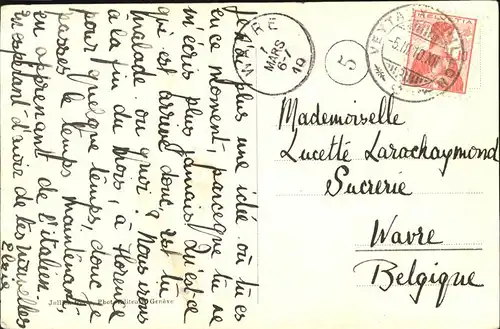 Je n'ai plus une idée où tu es
en ce moment, parceque tu ne
m'écris plus jamais! Qu'est-ce
qui est arrivé donc, es tu
malade ou quoi? Nous irons
à la fin du mois, à Florence
pour quelque temps, donc je
passes le temps maintenant,
en apprenant de l'italien.
En espérant d'avoir de tes nouvelles
Elsie
WAVRE
7
MARS
6-7
19
5
HELVETIA
VEYTAUX-CHILLON
Mademoiselle
Lucette Larachaymond
Sucrerie
Wavre
Belgique
Phot. Editeurs, Genève